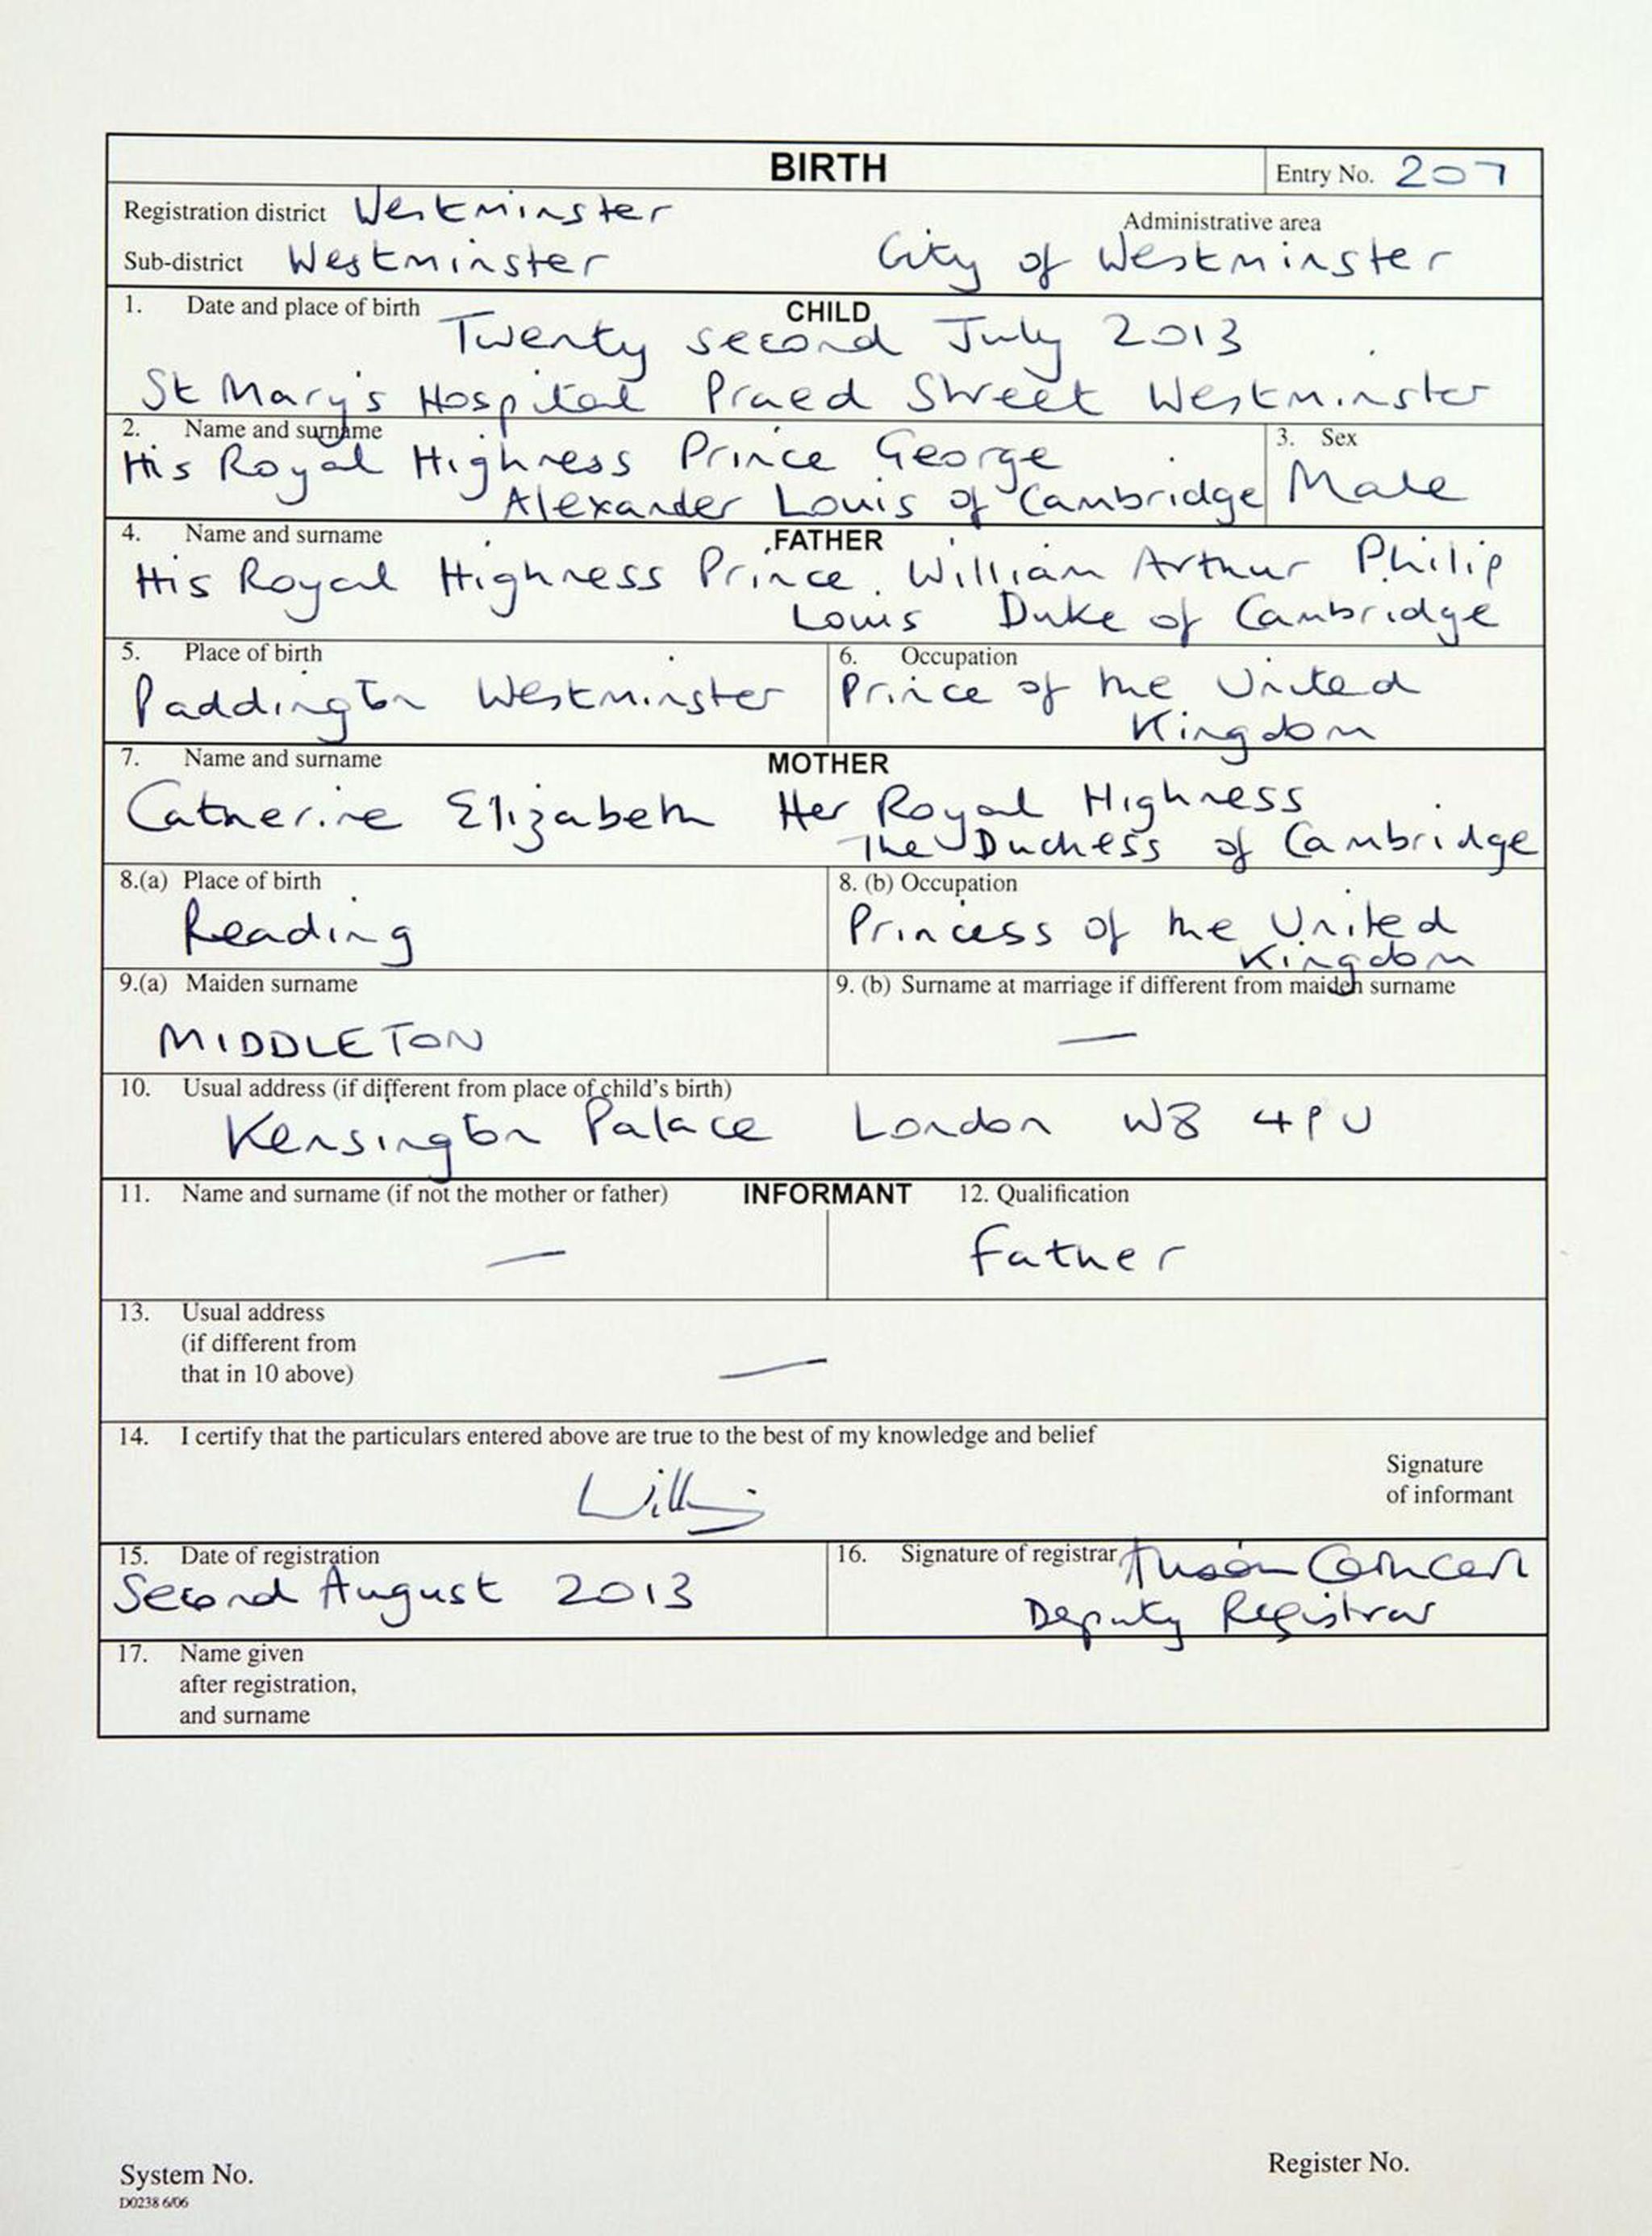 BIRTH
Entry No. 207
Registration district Westminster
Administrative area
Sub-district Westminster
City of Westminster
1. Date and place of birth
CHILD
Twenty second July 2013
St Mary's Hospital Praed Street Westminster
2. Name and surname
3. Sex
His Royal Highness Prince George
Alexander Louis of Cambridge
Male
4. Name and surname
FATHER
His Royal Highness Prince William Arthur Philip
Louis Duke of Cambridge
5. Place of birth
Paddington Westminster
6. Occupation
Prince of the United
Kingdom
7. Name and surname
MOTHER
Catherine Elizabeth Her Royal Highness
The Duchess of Cambridge
8.(a) Place of birth
Reading
8. (b) Occupation
Princess of the United
Kingdom
9.(a) Maiden surname
MIDDLETON
9. (b) Surname at marriage if different from maiden surname
—
10. Usual address (if different from place of child's birth)
Kensington Palace London W8 4PU
11. Name and surname (if not the mother or father)
INFORMANT
12. Qualification
—
Father
13. Usual address
(if different from
that in 10 above)
—
14. I certify that the particulars entered above are true to the best of my knowledge and belief
Signature
of informant
15. Date of registration
Second August 2013
16. Signature of registrar
Deputy Registrar
17. Name given
after registration,
and surname
System No.
D0238 6/06
Register No.